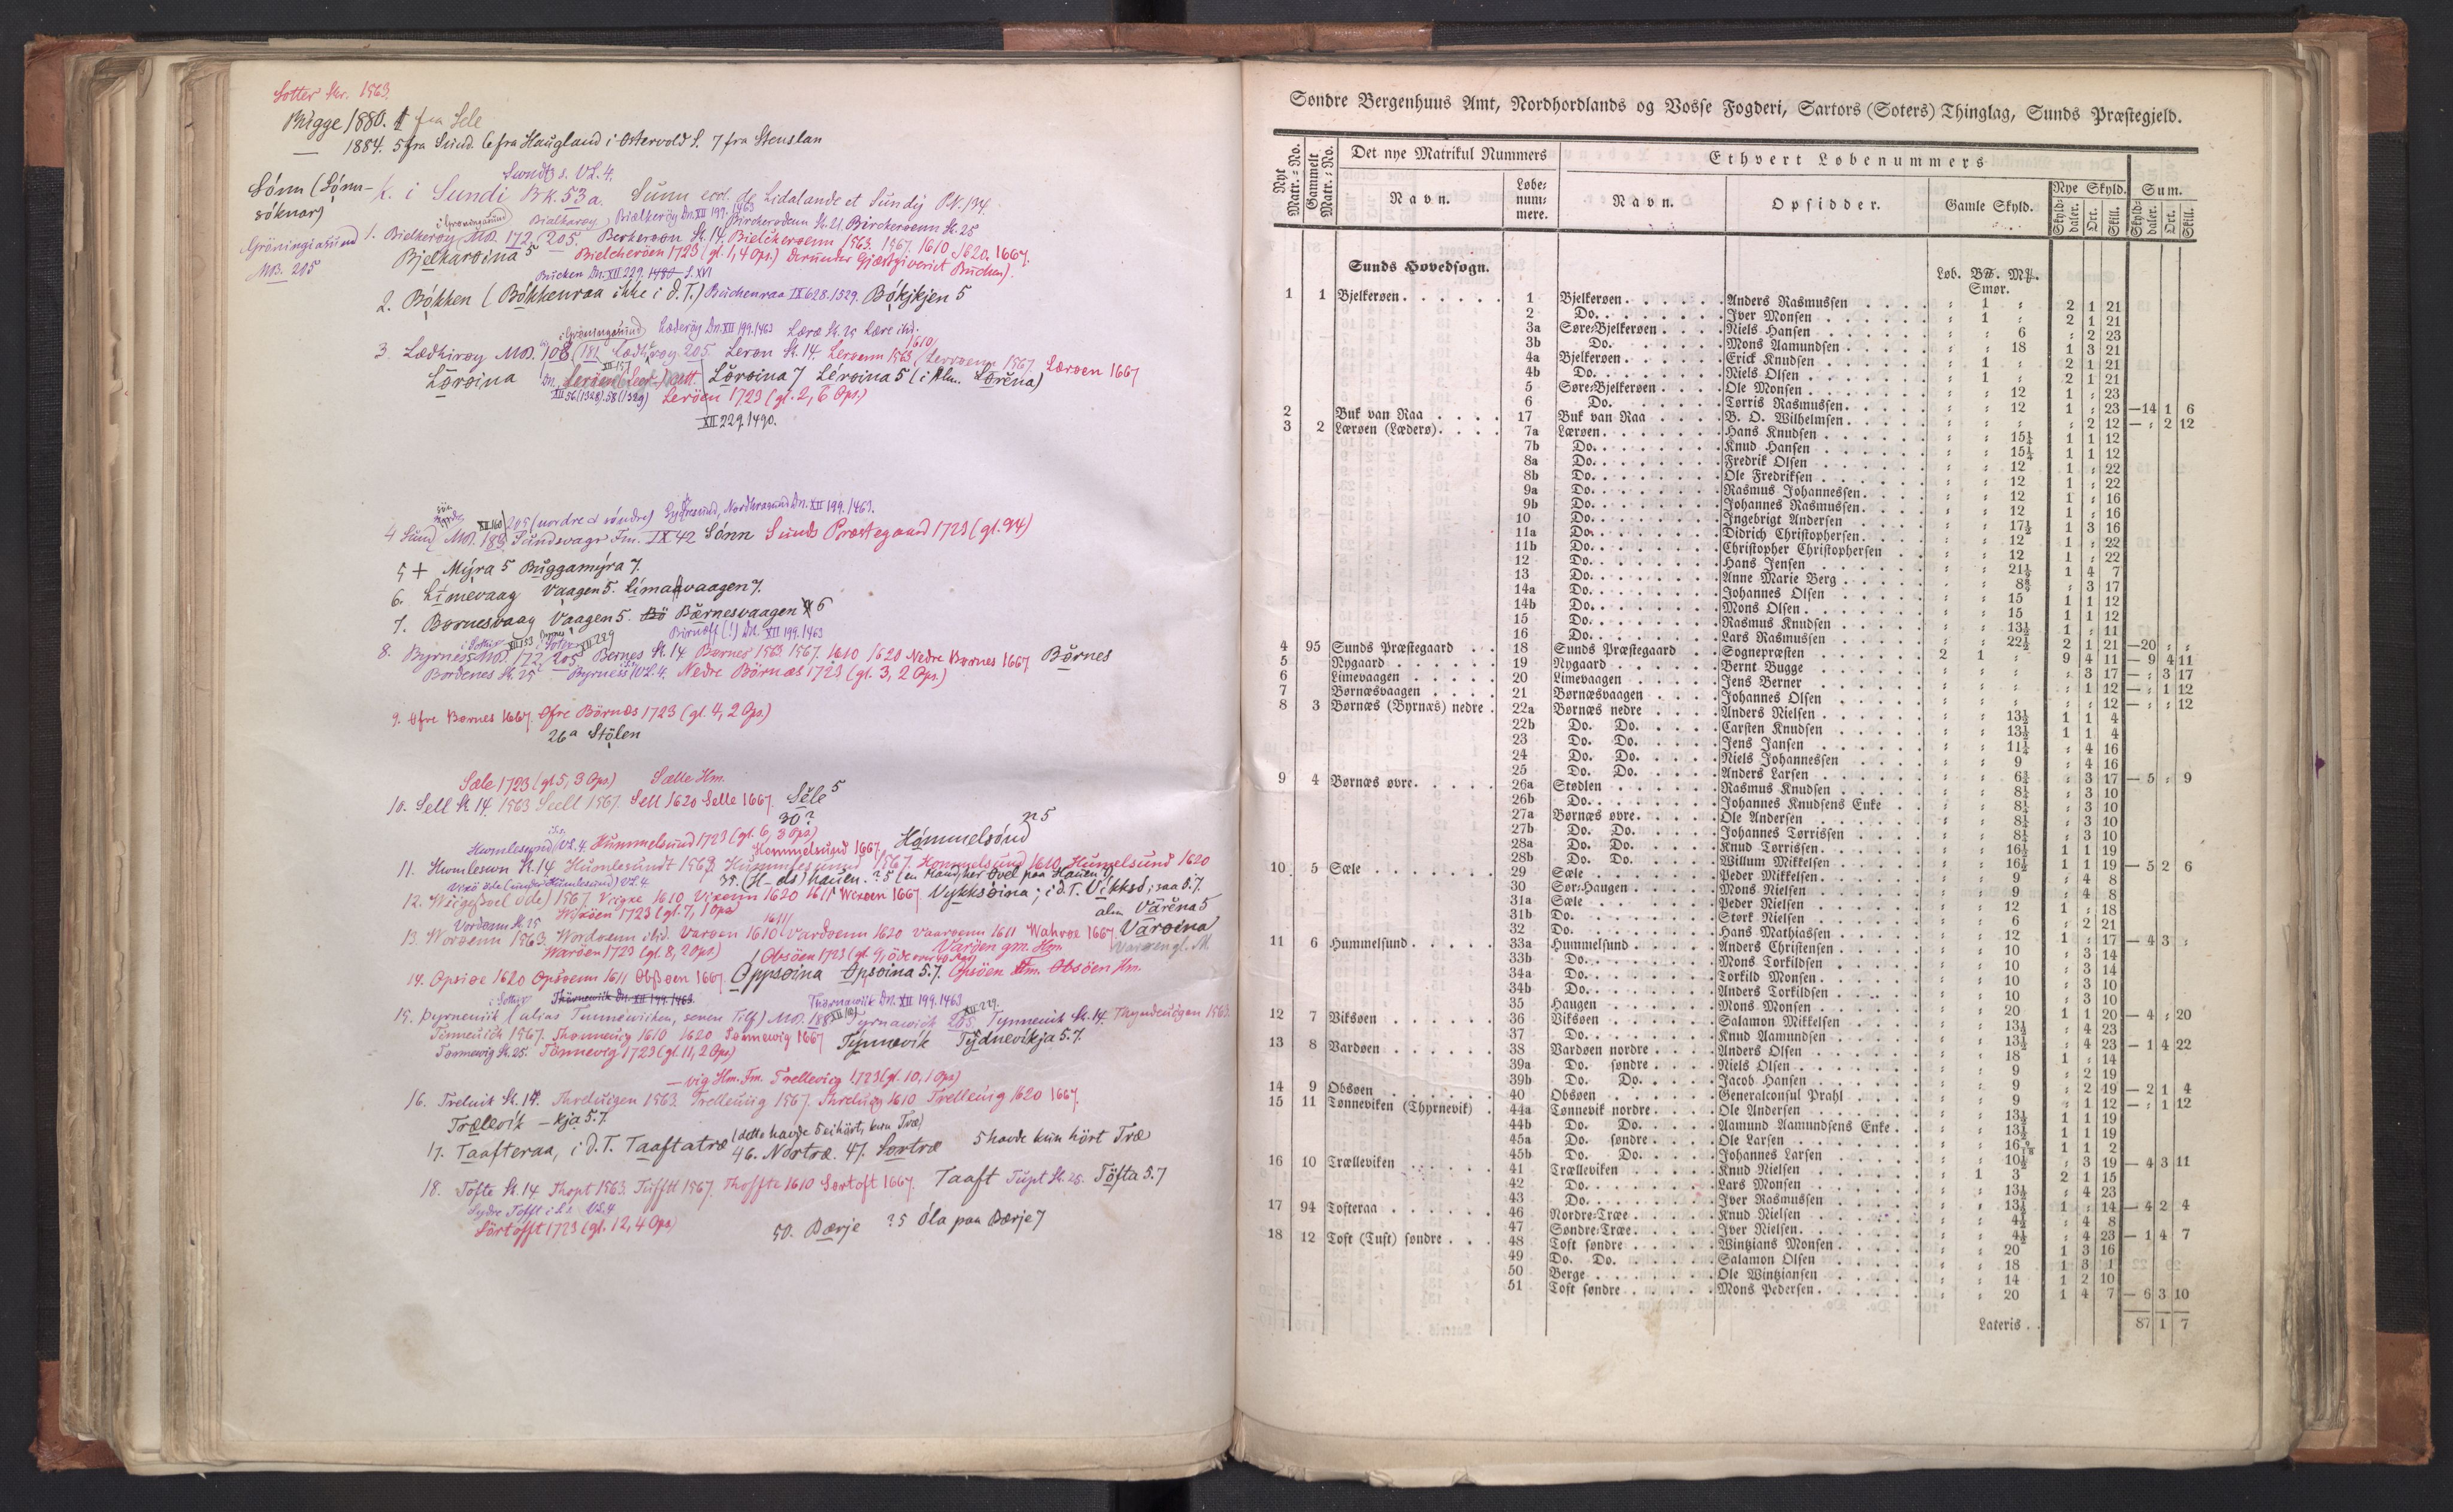 Sotter Skr. 1563.
Bugge 1880. 1 fra Sele
— 1884. 5 fra Sund. 6 fra Haugland i Ostervold S. 7 fra Stenslan
Sundz s. VL. 4.
Sónn (Sónn- k. i Sundi BK. 53a. Sunn eccl. de Lidalande et Sundij BK. 134.
sóknar)
i Grøningasund) Bialkarøy) Biælkerøy Dn. XII 199. 1463
Gröningiasund 1. Bielkerøy MB. 172, 205. Berkersøn St. 14. Bielckerøenn 1563. 1567. 1610. 1620. 1667.
Birckerødenn St. 21. Birckerøenn St. 25
MB. 205 Bjelkarøina 5 Bielcherøen 1723 (gl. 1, 4 Ops.) derunder Gjæstgiveriet Buchen).
Buchen Dn. XII 229. 1480
2. Bókken (Bókkenraa ikke i d. T.) Buchenraa IX 628. 1529. Bókjkjen 5
i Grøningasund) Læderøy Dn. XII 199. 1463 Læræ St. 25 Lære ibid.
3. Lædhirøy MB. 108 (181) Lædherøy 205. Lerøn St. 14. Lerøenn 1563 1610 / Lerrøenn 1567. Lærøen 1667
Lörøina Lörøina 7 Lérøina 5 (i Alm. Löréna)
XII 56 (1328). 58 (1329) Leröen 1723 (gl. 2, 6 Ops.)
XII 229. 1490.
205 (nordre & söndre) Sydresund, Nordhrasund Dn. XII 199. 1463.
4 Sund MB. 189 Sundsvagr Fm. IX 42 Sónn Sunds Præstegaard 1723 (gl. 94)
5 + Mýra 5 Buggamýra 7.
6. Límevaag Vaagen 5. Límavaagen 7.
7. Børnesvaag Vaagen 5. Bö Børnesvaagen 6
Birnæss (!) Dn. XII 199. 1463
8. Byrnes MB. 172, 205 Bernes St. 14 Børnes 1563 1567. 1610 1620 Nedre Børnes 1667 Börnes
Bordenes St. 25 Byrness VL. 4. Nedre Börnæs 1723 (gl. 3, 2 Ops.)
9. Øfre Børnes 1667. Øfre Börnæs 1723 (gl. 4, 2 Ops.)
26a Stölen
Sæle 1723 (gl. 5, 3 Ops.) Sælle Hm.
10. Sell St. 14. 1563 Seell 1567. Sell 1620 Selle 1667. Séle 5
30?
Humlesund VL. 4. Hummelsund 1723 (gl. 6, 3 Ops.) Hommelsund 1667. Hómmelsónd n 5
11. Humleswn St. 14 Humlesundt 1563. Hummlesund 1567. Hommelsund 1610. Hummelsund 1620
Vixö øde (under Humlesund) VL. 4 35. (H–ds) hauen. ? 5 (en Mand her Ovel paa Hauen 7)
12. Wiigeßoel (øde) 1567. Viigxe 1610 Vixenn 1620 1611 Wixøen 1667. Vykksøina; i d. T. Vikksö; saa 5. 7.
Wixöen 1723 (gl. 7, 1 Ops) alm Väréna 5
Vordøenn St. 25 1611
13. Worøenn 1563. Wordøenn ibid. Varøen 1610 Vardøenn 1620 Vaarøenn 1611 Wahrøe 1667. Värøina
Waröen 1729 (gl. 8, 2 Ops) Obsöen 1723 (gl. 9, øde Varöen gm. Hm Varøen gl. M
14. Opsiøe 1620 Opsøenn 1611 Obßøen 1667. Oppsøina Opsøina 5. 7. Opsöen Hm. Obsöen Hm.
i Sottir Thörnewiik Dn. XII 199. 1463. Thørnawiik Dn. XII 199. 1463 XII 229.
15. Þyrneuiik (alias Tunnewiiken, senere Tilf) MB. 188 Tyrnawick 205 Tynneuik St. 14. Thynduigen 1563.
Tinneuich 1567. Thønneuig 1610 1620 Tønnewig 1667 Tynnevík Týdnevikja 5. 7.
Tønnewig St. 25. Tönnevig 1723 (gl. 11, 2 Ops)
—vig Hm. Fm. Trellevieg 1723 (gl. 10, 1 Ops)
16. Treluik St. 14. Threluigen 1563. Trelleuiig 1567. Threluig 1610 Trelleuig 1620 1667.
Trælevík —kja 5. 7.
17. Taafteraa, i d. T. Taaftatræ (dette havde 5 ei hört, kun Træ)
46. Nortræ. 47. Sortræ 5 havde kun hört Træ
18. Tofte St. 14 Thopt 1563. Tufftt 1567. Thoffte 1610 Sørtoft 1667. Taaft Tupt St. 25. Töfta 5. 7
Sydre Tofft i VL. 4
Sörtofft 1723 (gl. 12, 4 Ops) 50. Bærje ? 5 Óla paa Bærje 7
Søndre Bergenhuus Amt, Nordhordlands og Vosse Fogderi, Sartors (Soters) Thinglag, Sunds Præstegjeld.
Nyt Matr.-No. Gammelt Matr.-No. Det nye Matrikul Nummers Ethvert Løbenummers
Navn. Løbenummere. Navn. Opsidder. Gamle Skyld. Nye Skyld. Sum.
Skylddaler. Ort. Skill. Skylddaler. Ort. Skill.
Sunds Hovedsogn. Løb. B℔. M℔.
Smør.
1 1 Bjelkerøen 1 Bjelkerøen Anders Rasmussen " 1 " 2 1 21
2 Do. Iver Monsen " 1 " 2 1 21
3a Søre-Bjelkerøen Niels Hansen " " 6 " 2 23
3b Do. Mons Aamundsen " " 18 1 3 21
4a Bjelkerøen Erick Knudsen " 1 " 2 1 21
4b Do. Niels Olsen " 1 " 2 1 21
5 Søre-Bjelkerøen Ole Monsen " " 12 1 " 23
6 Do. Torris Rasmussen " " 12 1 " 23 — 14 1 6
2 Buk van Raa 17 Buk van Raa B. O. Wilhelmsen " " " " 2 12 — " 2 12
3 2 Lærøen (Læderø) 7a Lærøen Hans Knudsen " " 15¼ 1 1 12
7b Do. Knud Hansen " " 15¼ 1 1 12
8a Do. Fredrik Olsen " " 12 1 " 22
8b Do. Ole Fredriksen " " 12 1 " 22
9a Do. Rasmus Johannessen " " 12 1 " 16
9b Do. Johannes Rasmussen " " 12 1 " 16
10 Do. Ingebrigt Andersen " " 17½ 1 3 16
11a Do. Didrich Christophersen " " 12 1 " 22
11b Do. Christopher Christophersen " " 12 1 " 22
12 Do. Hans Jensen " " 21½ 1 4 7
13 Do. Anne Marie Berg " " " 3 17
14a Do. Johannes Olsen " " 15 1 1 12
14b Do. Mons Olsen " " 15 1 1 12
15 Do. Rasmus Knudsen " " 13½ 1 " 11
16 Do. Lars Rasmussen " " 22½ 2 1 21 — 20 " "
4 95 Sunds Præstegaard 18 Sunds Præstegaard Sognepræsten 2 1 " 9 4 11 — 9 4 11
5 Nygaard 19 Nygaard Bernt Bugge " " " " 3 17 — " 3 17
6 Limevaagen 20 Limevaagen Jens Berner " " " " 1 12 — " 1 12
7 Børnæsvaagen 21 Børnæsvaagen Johannes Olsen " " " " " 12 — " " 12
8 3 Børnæs (Byrnæs) nedre 22a Børnæs nedre Anders Nielsen " " 13½ 1 1 4
22b Do. Do. Carsten Knudsen " " 13½ 1 1 4
23 Do. Do. Jens Jansen " " 11¼ " 4 16
24 Do. Do. Niels Johannessen " " 9 " 4 16
25 Do. Do. Anders Larsen " " 6¾ " 3 17 — 5 " 9
9 4 Børnæs øvre 26a Stødlen Rasmus Knudsen " " 8¼ " 3 10
26b Do. Johannes Knudsens Enke " " 8¼ " 3 10
27a Børnæs øvre Ole Andersen " " 8¼ " 3 10
27b Do. Do. Johannes Torrissen " " 8¼ " 3 10
28a Do. Do. Knud Torrissen " " 16½ 1 1 19
28b Do. Do. Willum Mikkelsen " " 16½ 1 1 19 — 5 2 6
10 5 Sæle 29 Sæle Peder Mikkelsen " " 9 " 4 8
30 Sør-Haugen Mons Nielsen " " 9 " 4 8
31a Sæle Peder Nielsen " " 12 1 " 18
31b Do. Stork Nielsen " " 6 " 2 21
32 Do. Hans Mathiassen " " 12 1 " 17 — 4 3 "
11 6 Hummelsund 33a Hummelsund Anders Christensen " " 10 " 3 14
33b Do. Mons Torkildsen " " 10 " 3 14
34a Do. Torkild Monsen " " 10 " 3 10
34b Do. Anders Torkildsen " " 10 " 3 10
35 Haugen Mons Monsen " " 20 1 1 20 — 4 " 20
12 7 Viksøen 36 Viksøen Salamon Mikkelsen " " 13½ " 4 23
37 Do. Knud Aamundsen " " 13½ " 4 23 — 1 4 22
13 8 Vardøen 38 Vardøen nordre Anders Olsen " " 18 1 " 14
39a Do. søndre Niels Olsen " " 9 " 2 19
39b Do. Do. Jacob Hansen " " 9 " 2 19 — 2 1 4
14 9 Obsøen 40 Obsøen Generalconsul Prahl " " 9 " 1 12 — " 1 12
15 11 Tønneviken (Thyrnevik) 44a Tønnevik nordre Ole Andersen " " 13½ 1 1 19
44b Do. Do. Aamund Aamundsens Enke " " 13½ 1 1 19
45a Do. søndre Ole Larsen " " 1 1 2
45b Do. Do. Johannes Larsen " " 10½ " 3 19 — 4 3 11
16 10 Trælleviken 41 Trælleviken Knud Nielsen " 1 3 2 1 15
42 Do. Lars Monsen " " 13½ " 4 23
43 Do. Iver Rasmussen " " 13½ 1 " 14 — 4 2 4
17 94 Tofteraa 46 Nordre-Træe Knud Nielsen " " 4½ " 4 8
47 Søndre-Træe Iver Nielsen " " 4½ " 4 23 — 1 4 7
18 12 Toft (Tuft) søndre 48 Toft søndre Wintzians Monsen " " 20 1 3 16
49 Do. Do. Salamon Olsen " " 18 1 3 1
50 Berge Ole Wintziansen " " 14 1 2 10
51 Toft søndre Mons Pedersen " " 20 1 4 7 — 6 3 10
Lateris 87 1 7